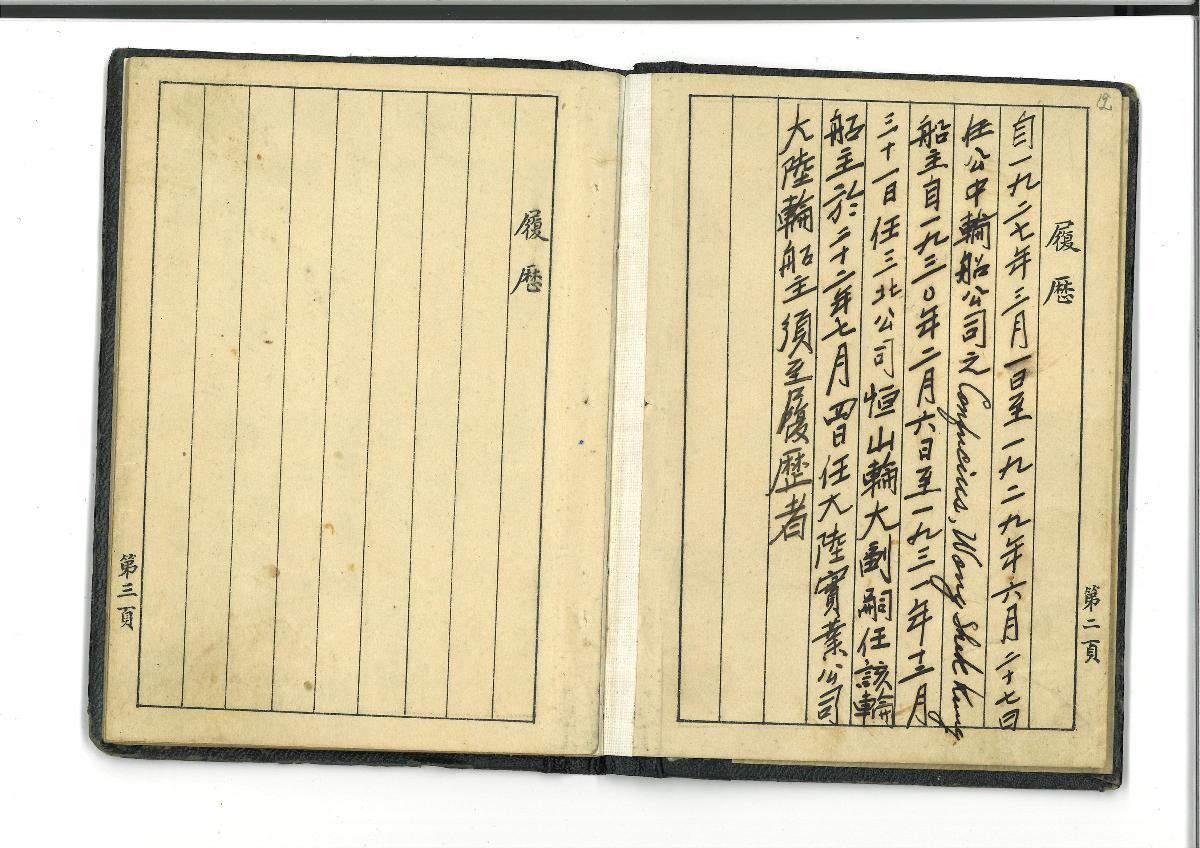 12
履歷
自一九二七年三月一日至一九二九年六月二十七日
任公中輪船公司之Confucius, Wong Shek Kung
船主自一九三〇年二月六日至一九三一年十二月
三十一日任三北公司恒山輪大副嗣任該輪
船主於二十二年七月四日任大陸實業公司
大陸輪船主須至履歷者
第二頁
履歷
第三頁